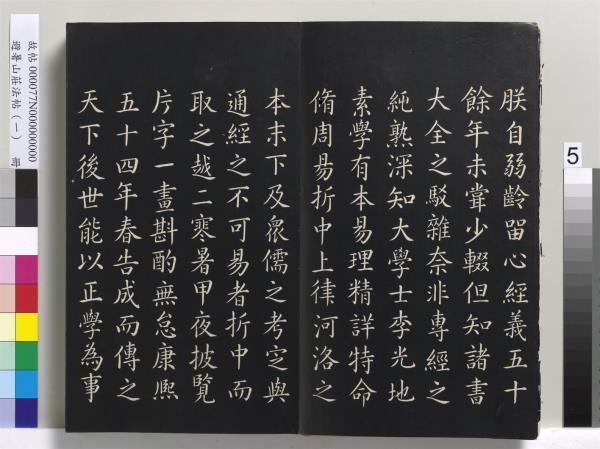 朕自弱齡留心經義五十
餘年未嘗少輟但知諸書
大全之駁雜奈非專經之
純熟深知大學士李光地
素學有本易理精詳特命
脩周易折中上律河洛之
本末下及衆儒之考定與
通經之不可易者折中而
取之越二寒暑甲夜披覽
片字一畫斟酌無怠康熙
五十四年春告成而傳之
天下後世能以正學為事
故帖 000077N000000000
避暑山莊法帖（一） 冊
5